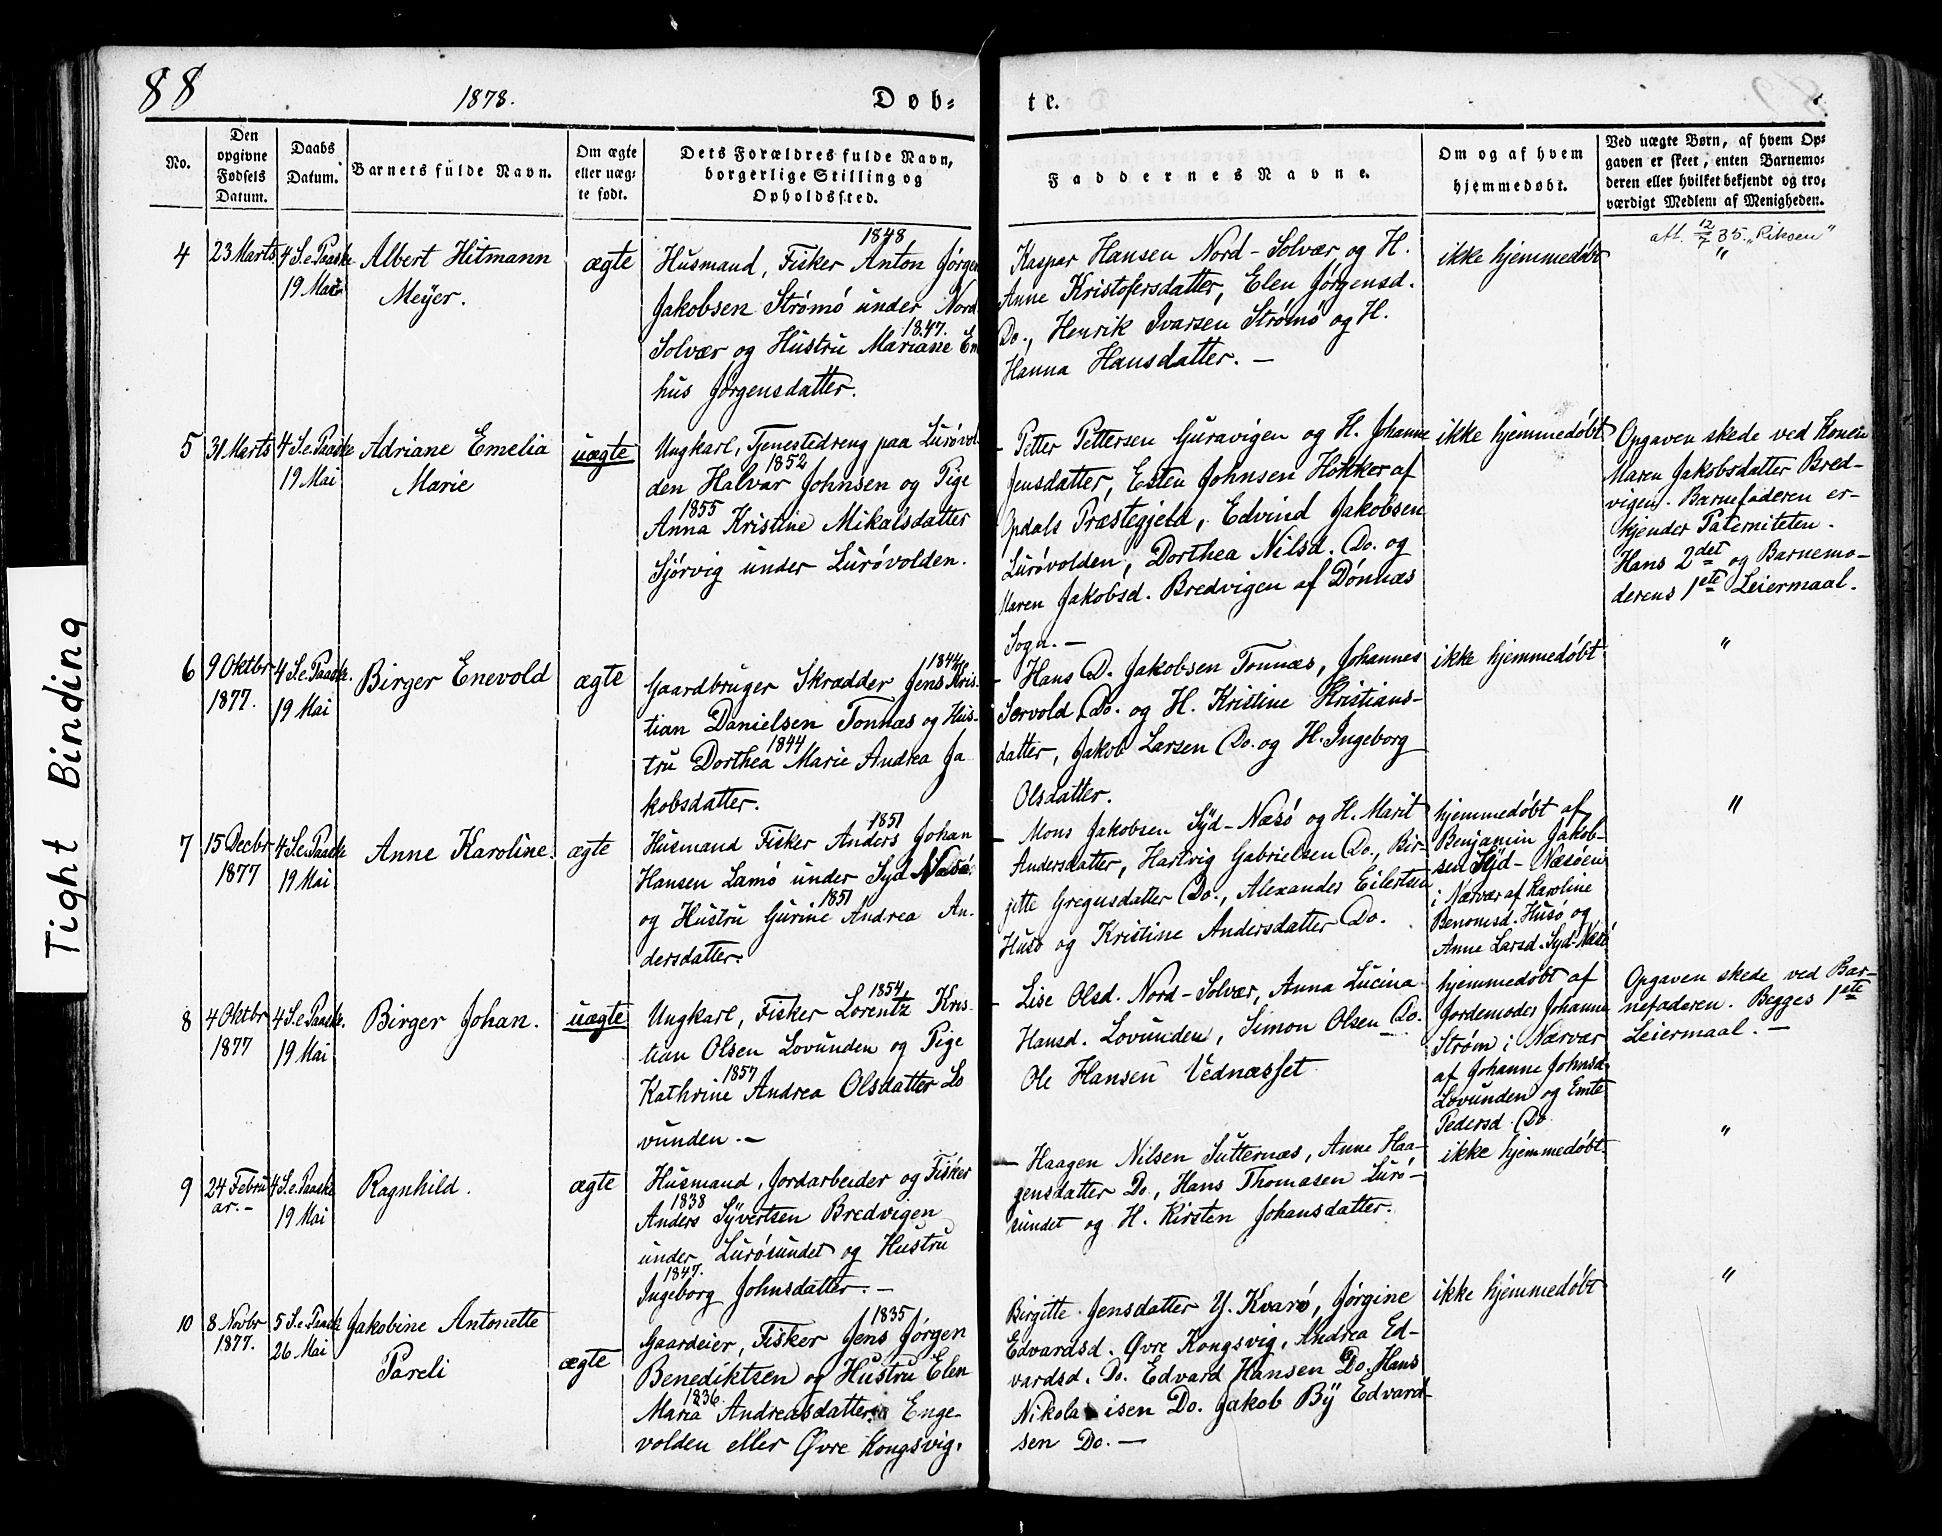 88
1878.
Døb-
te.
No.
Den
opgivne
Fødsels
Datum.
Daabs
Datum.
Barnets fulde Navn.
Om ægte
eller uæg-
te født.
Dets Forældres fulde Navn,
borgerlige Stilling og
Opholdssted.
Faddernes Navne.
Om og af hvem
hjemmedøbt.
Ved uægte Børn, af hvem Op-
gaven er skeet, enten Barnemo-
deren eller hvilket bekjendt og tro-
værdigt Medlem af Menigheden.
4
23 Marts
4 S. e. Paaske
19 Mai
Albert Hitmann
Meyer.
ægte
1848
Husmand, Fisker Anton Jørgen
Jakobsen Strømø under Nord
1847.
Solvær og Hustru Mariane Em
hus Jørgensdatter.
Kaspar Hansen Nord-Solvær og H.
Anne Kristofersdatter, Elen Jørgensd.
Do., Henrik Ivarsen Strømø og H.
Hanna Hansdatter. —
ikke hjemmedøbt
att. 12/7 35 „Riksen"
"
5
31 Marts
4 S. e. Paaske
19 Mai
Adriane Emelia
Marie
uægte
Ungkarl, Tjenestedreng paa Lurøvol
1852
den Halvar Johnsen og Pige
1855
Anna Kristine Mikalsdatter
Sjørvig under Lurøvolden.
- Petter Pettersen Guravigen og H. Johanne
Jensdatter, Esten Johnsen Hokker af
Opdals Præstegjeld, Edvind Jakobsen
Lurøvolden, Dorthea Nilsd. Do. og
Maren Jakobsd. Bredvigen af Dønnæs
Sogn. —
ikke hjemmedøbt
Opgaven skede ved Konen
Maren Jakobsdatter Bred-
vigen. Barnefaderen er-
kjender Paterniteten.
Hans 2det og Barnemo-
derens 1ste Leiermaal.
6
9 Oktbr
1877.
4 S. e. Paaske.
19 Mai
Birger Enevold
ægte
1844
Gaardbruger Skrædder Jens Kris-
tian Danielsen Tonnæs og Hus-
1844
tru Dorthea Marie Andrea Ja-
kobsdatter.
- Hans D. Jakobsen Tonnæs, Johannes
Sørvold Do. og H. Kristine Kristians-
datter, Jakob Larsen Do. og H. Ingeborg
Olsdatter.
ikke hjemmedøbt
"
7
15 Decbr
1877
4 S. e. Paaske
19 Mai
Anne Karoline.
ægte
1851
Husmand Fisker Anders Johan
Hansen Lamø under Syd Næsø.
1851
og Hustru Gurine Andrea An-
dersdatter.
- Mons Jakobsen Syd-Næsø og H. Marit
Andersdatter, Hartvig Gabrielsen Do., Bir-
gitte Gregusdatter Do., Alexander Eilertsen
Husø og Kristine Andersdatter Do.
hjemmedøbt af
Benjamin Jakob-
sen Syd-Næsøen
i Nærvær af Karoline
Benonisd. Husø og
Anne Larsd. Syd-Næsø
"
8
4 Oktbr
1877
4 S. e. Paaske.
19 Mai
Birger Johan.
uægte
1854
Ungkarl, Fisker Lorentz Kris-
tian Olsen Lovunden og Pige
1857
Kathrine Andrea Olsdatter Lo
vunden. —
- Lise Olsd. Nord-Solvær, Anna Lucina
Hansd. Lovunden, Simon Olsen Do.
Ole Hansen Vednæsset
hjemmedøbt af
Jordemoder Johanne
Strøm i Nærvær
af Johanne Johnsd.
Lovunden og Emte
Pedersd. Do
Opgaven skede ved Bar-
nefaderen. Begges 1ste
Leiermaal. —
9
24 Febru
ar. -
4 S. e. Paaske
19 Mai
Ragnhild.
ægte
Husmand, Jordarbeider og Fisker
1838
Anders Syvertsen Bredvigen
under Lurøsundet og Hustru
1847.
Ingeborg Johnsdatter. -
- Haagen Nilsen Sutternæs, Anne Haa-
gensdatter Do., Hans Thomasen Lurø-
sundet og H. Kirsten Johansdatter.
ikke hjemmedøbt
"
10
8 Novbr
1877.
5 S. e. Paaske
26 Mai
Jakobine Antonette
Pareli
ægte
1835
Gaardeier, Fisker Jens Jørgen
Benediktsen og Hustru Elen
1836.
Maria Andreasdatter Enge-
volden eller Øvre Kongsvig.
Birgitte Jensdatter Y. Kvarø, Jørgine
Edvardsd. Øvre Kongsvig, Andrea Ed-
vardsd. Do. Edvard Hansen Do. Hans
Nikolaisen Do. Jakob By Edvard-
sen Do. —
ikke hjemmedøbt
"
Tight Binding